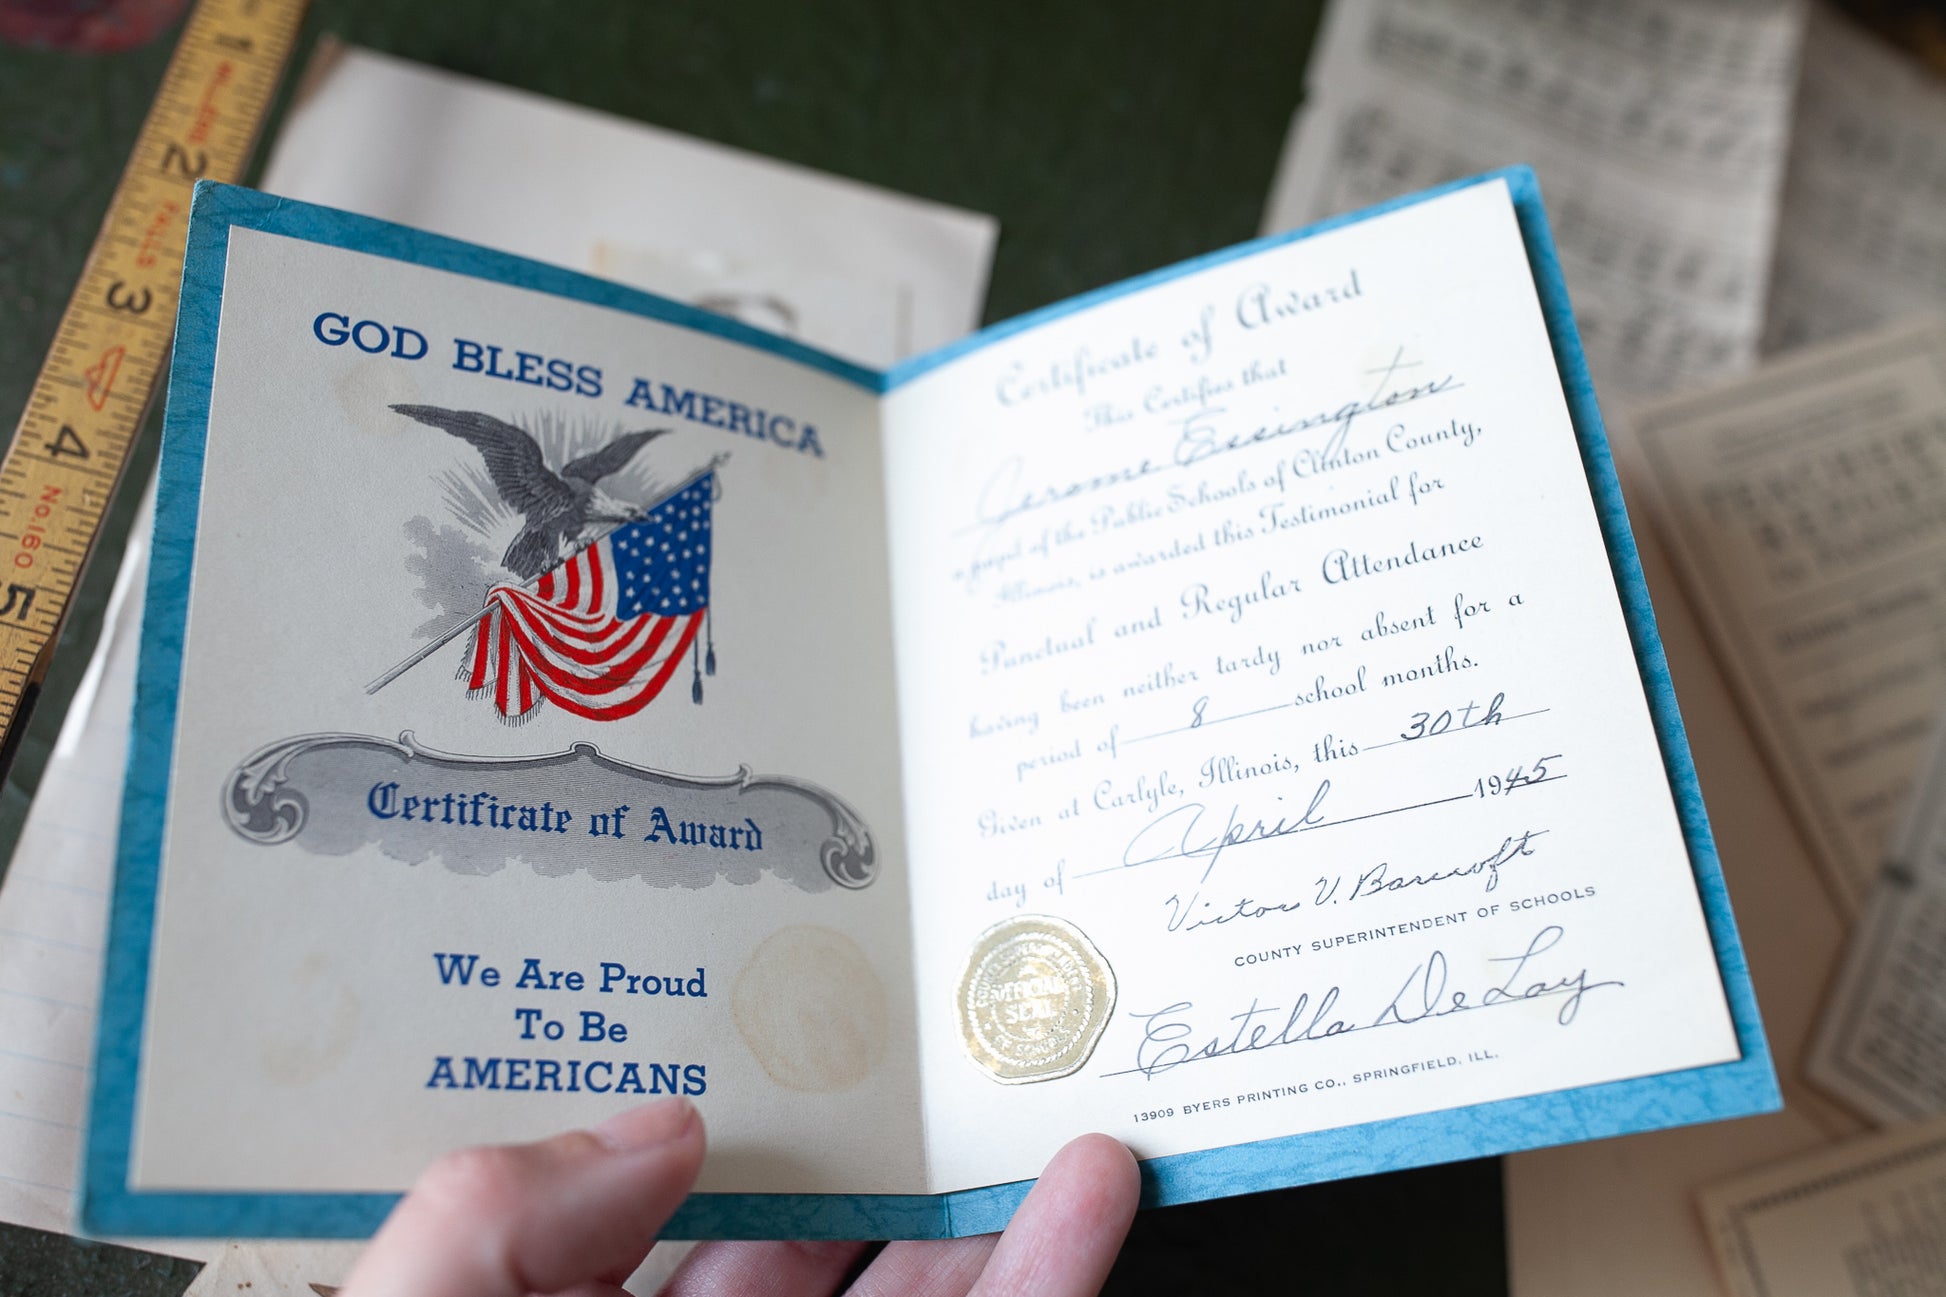 GOD BLESS AMERICA
Certificate of Award
We Are Proud
To Be
AMERICANS
Certificate of Award
This Certifies that
Jerome Essington
a pupil of the Public Schools of Clinton County,
Illinois, is awarded this Testimonial for
Punctual and Regular Attendance
having been neither tardy nor absent for a
period of 8 school months.
Given at Carlyle, Illinois, this 30th
day of April 1945
Victor V. Barcroft
COUNTY SUPERINTENDENT OF SCHOOLS
Estella DeLay
13909 BYERS PRINTING CO., SPRINGFIELD, ILL.
OFFICIAL
SEAL
OF SCHOOLS
1
2
FALLS
3
4
No.160
5